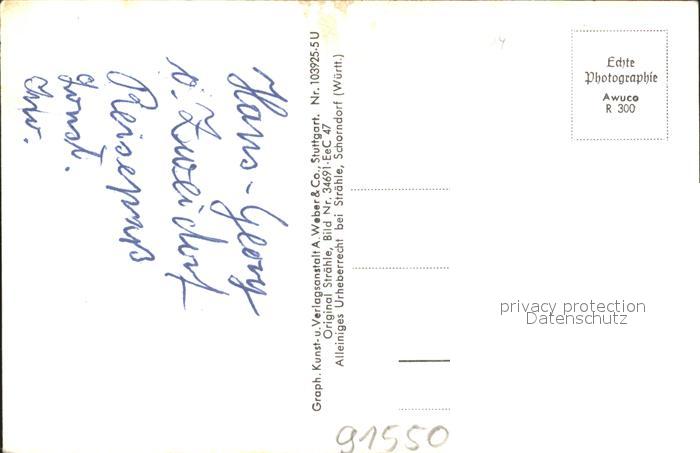 Hans-Georg
v. Zweidorf
Reisepaß
sonst.
Graph. Kunst- u. Verlagsanstalt A. Weber & Co., Stuttgart. Nr. 103925-5 U
Original Strähle, Bild Nr. 34691-EeC 47
Alleiniges Urheberrecht bei Strähle, Schorndorf (Württ.)
Echte
Photographie
Awuco
R 300
privacy protection
Datenschutz
91550